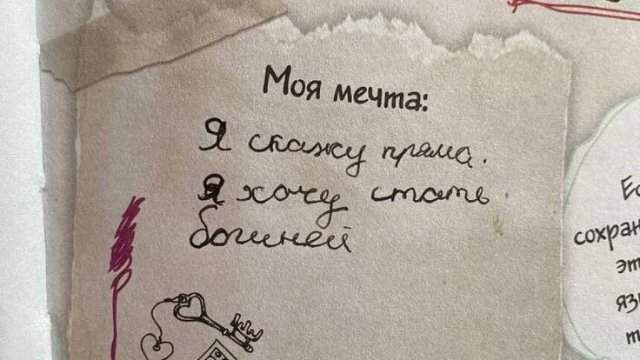 Моя мечта:
Я скажу пряма.
Я хочу стать
богиней
Ес
сохран
эт
язы
т